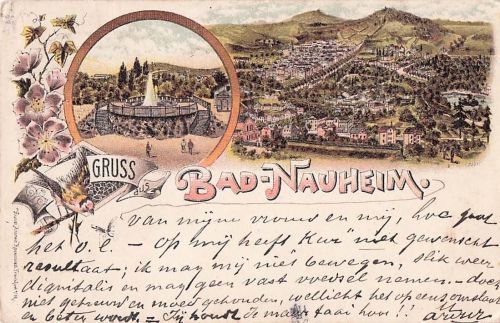 GRUSS
aus
BAD-NAUHEIM.
van mijne vrouw en mij, hoe gaat
het o.l. – Op mij heeft "Kur" niet gewenscht
resultaat; ik mag mij niet bewegen, slik weer
digitalis en mag geen vast voedsel nemen. – doch
niet getreurd en moed gehouden, wellicht het op eens omslaat
en beter wordt. – Jij houdt je maar taai hoor!!